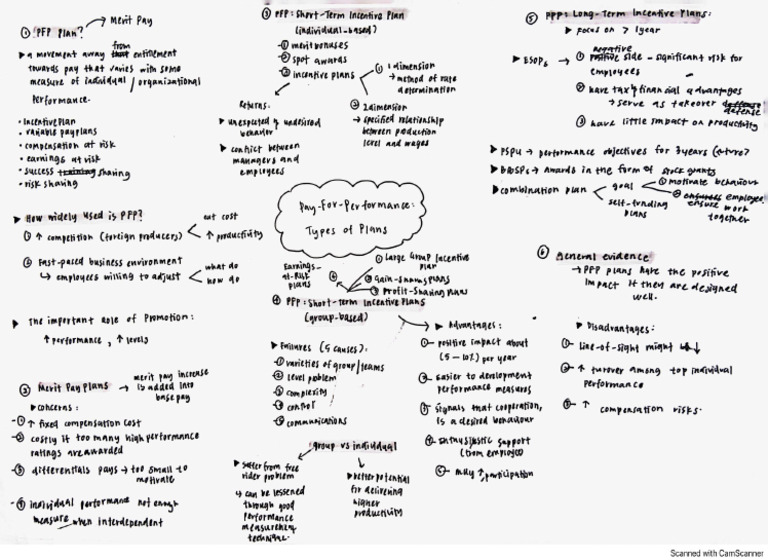 ① PFP Plan? → Merit Pay
▶ a movement away from entitlement
towards pay that varies with some
measure of individual / organizational
performance.
• Incentive Plan
• variable pay plans
• compensation at risk
• earnings at risk
• success sharing
• risk sharing
▶ How widely used is PFP?
① ↑ competition (foreign producers) cut cost
↑ productivity
② Fast-paced business environment
↳ employees willing to adjust what do
how do
▶ The important role of Promotion:
↑ performance, ↑ levels
② Merit Pay Plans → merit pay increase
is added into
base pay
▶ concerns:
① ↑ fixed compensation cost
② costly if too many high performance
ratings are awarded
③ differentials pays → too small to
motivate
④ individual performance not enough
measure when interdependent
③ PFP: Short-Term Incentive Plan
(individual-based)
① merit bonuses
② spot awards
③ incentive plans
① 1 dimension
→ method of rate
determination
② 2 dimension
→ specified relationship
between production
level and wages
Returns:
▶ unexpected & undesired
behavior
▶ conflict between
managers and
employees
Pay-For-Performance:
Types of Plans
① Large Group Incentive
Plan
② Gain-sharing Plans
③ Profit-Sharing Plans
④ Earnings-
at-Risk
plans
④ PFP: Short-Term Incentive Plans
(group-based)
▶ Failures (5 causes):
① varieties of group/teams
② level problem
③ complexity
④ control
⑤ communications
group vs individual
▶ suffer from free
rider problem
↳ can be lessened
through good
performance
measurement
technique.
▶ better potential
for delivering
higher
productivity
▶ Advantages:
① positive impact about
(5-10%) per year
② easier to development
performance measures
③ signals that cooperation,
is a desired behaviour
④ enthusiastic support
(from employee)
⑤ may ↑ participation
⑤ PFP: Long-Term Incentive Plans:
▶ focus on > 1 year
▶ ESOPs → ① negative side - significant risk for
employees
② have tax & financial advantages
→ serve as takeover defense
③ have little impact on productivity
▶ PSPU → performance objectives for 3 years (future)
▶ BBOSPs → awards in the form of stock grants
▶ combination plan goal
self-funding
plans
① motivate behaviour
② ensure employee
work
together
⑥ General evidence
→ PFP plans have the positive
impact if they are designed
well.
▶ Disadvantages:
① line-of-sight might ↓
② ↑ turnover among top individual
performance
③ ↑ compensation risks.
Scanned with CamScanner